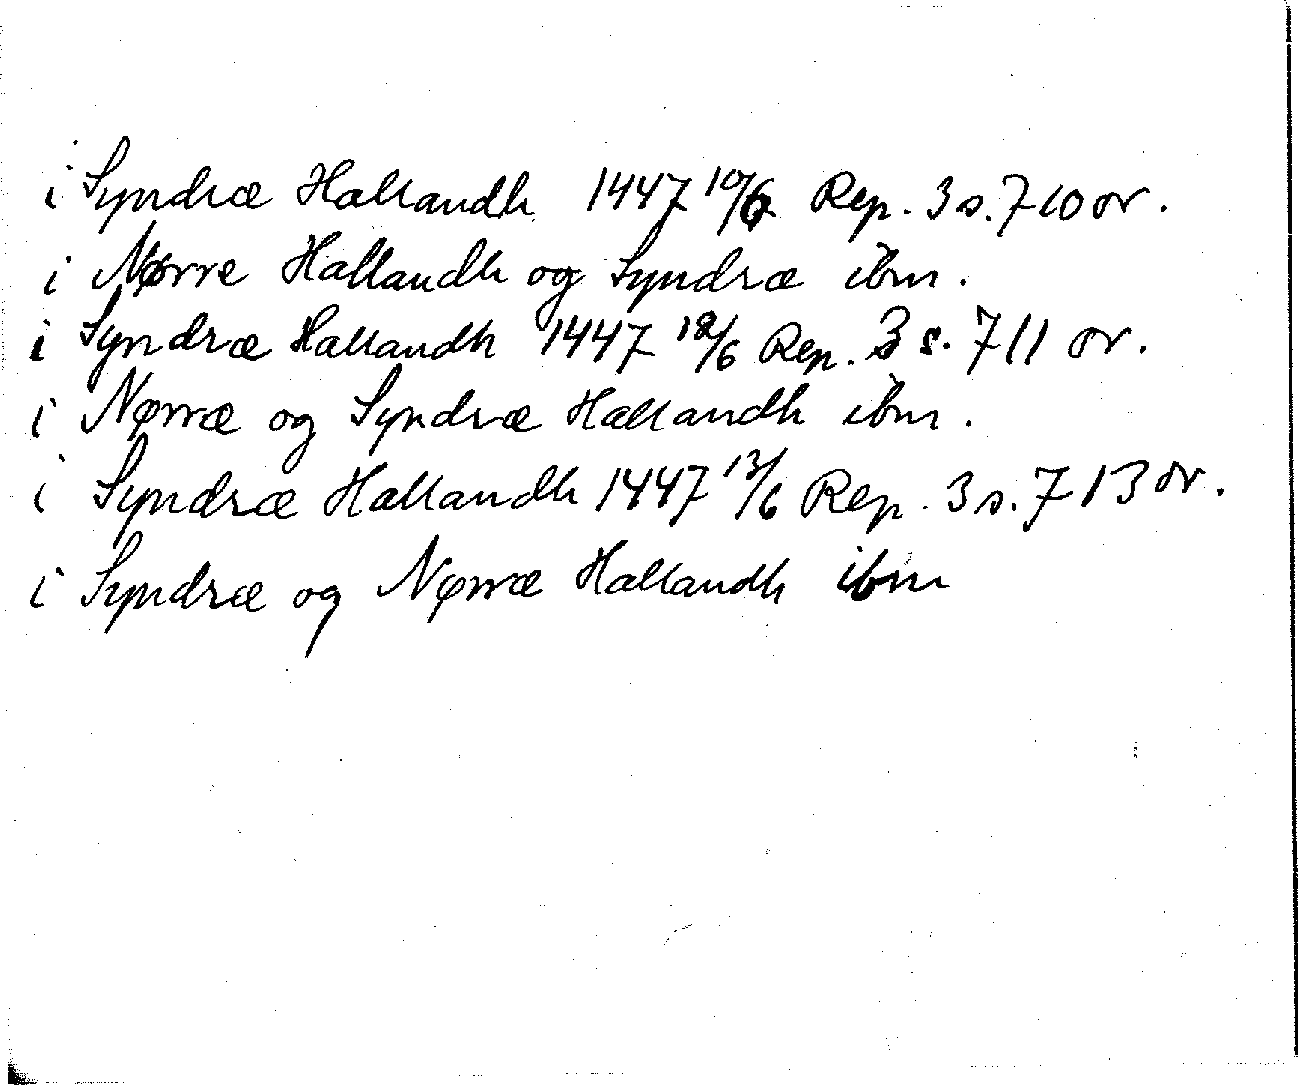 i Syndræ Hallandh 1447 10/6 Rep. 3 s. 710 or.
i Nørre Hallandh og Syndræ ibm.
i Syndræ Hallandh 1447 12/6 Rep. 3 s. 711 or.
i Nørræ og Syndræ Hallandh ibm.
i Syndræ Hallandh 1447 13/6 Rep. 3 s. 713 or.
i Syndræ og Nørræ Hallandh ibm